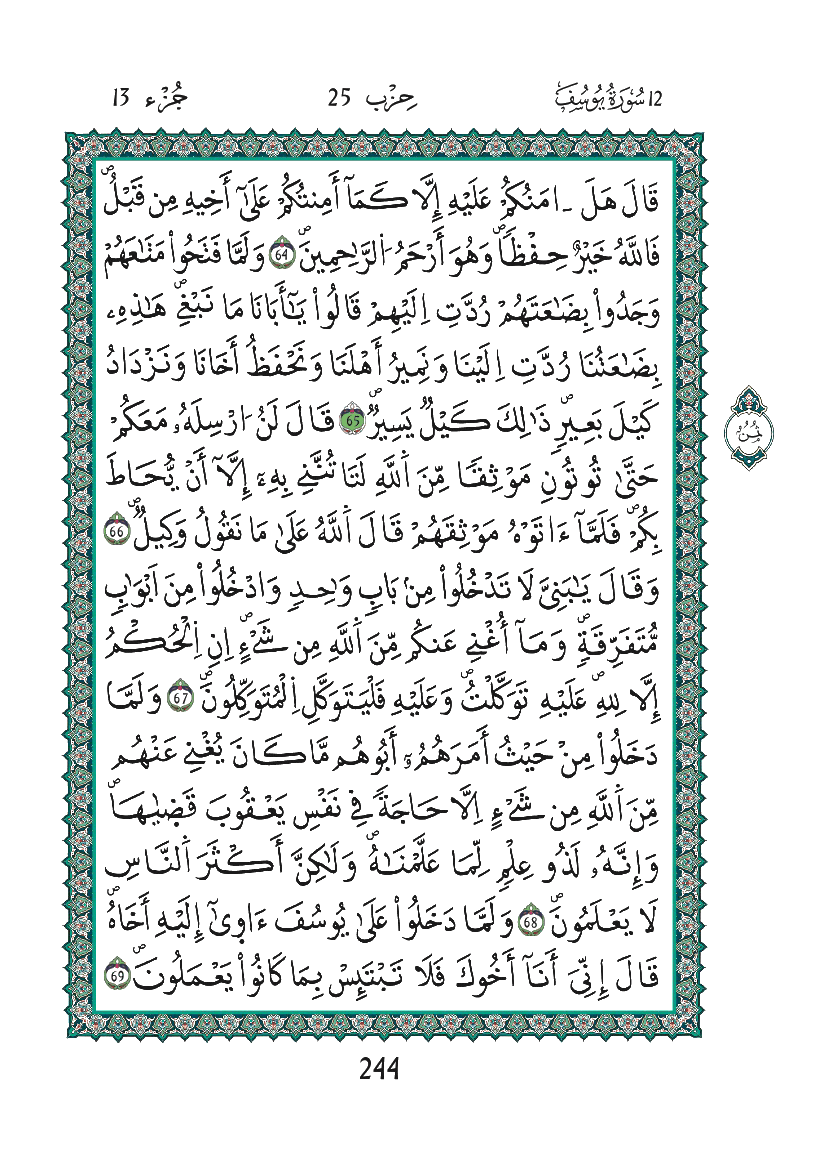 12 سُورَةُ يُوسُفَ حِزْب 25 جُزْء 13
قَالَ هَلَ ـ اٰمَنُكُمْ عَلَيْهِ إِلَّا كَمَآ أَمِنتُكُمْ عَلَىٰٓ أَخِيهِ مِن قَبْلُۖ
فَاللَّهُ خَيْرٌ حِفْظاًۖ وَهُوَ أَرْحَمُ اُلرَّٰحِمِينَۖ 64 وَلَمَّا فَتَحُواْ مَتَٰعَهُمْ
وَجَدُواْ بِضَٰعَتَهُمْ رُدَّتِ اِلَيْهِمْ قَالُواْ يَٰٓأَبَانَا مَا نَبْغِےۖ هَٰذِهِۦ
بِضَٰعَتُنَا رُدَّتِ اِلَيْنَا وَنَمِيرُ أَهْلَنَا وَنَحْفَظُ أَخَانَا وَنَزْدَادُ
كَيْلَ بَعِيرٖۖ ذَٰلِكَ كَيْلٌ يَسِيرٌۖ 65 قَالَ لَنُ ا۟رْسِلَهُۥ مَعَكُمْ
حَتَّىٰ تُوتُونِ مَوْثِقاً مِّنَ اَللَّهِ لَتَاتُنَّنِے بِهِۦٓ إِلَّآ أَنْ يُّحَاطَ
بِكُمْۖ فَلَمَّآ ءَاتَوْهُ مَوْثِقَهُمْ قَالَ اَللَّهُ عَلَىٰ مَا نَقُولُ وَكِيلٌۖ 66
وَقَالَ يَٰبَنِيَّ لَا تَدْخُلُواْ مِنۢ بَابٖ وَٰحِدٖ وَادْخُلُواْ مِنَ اَبْوَٰبٖ
مُّتَفَرِّقَةٖۖ وَمَآ أُغْنِے عَنكُم مِّنَ اَللَّهِ مِن شَےْءٍۖ اِنِ اِلْحُكْمُ
إِلَّا لِلهِۖ عَلَيْهِ تَوَكَّلْتُۖ وَعَلَيْهِ فَلْيَتَوَكَّلِ اِلْمُتَوَكِّلُونَۖ 67 وَلَمَّا
دَخَلُواْ مِنْ حَيْثُ أَمَرَهُمُۥٓ أَبُوهُم مَّا كَانَ يُغْنِے عَنْهُم
مِّنَ اَللَّهِ مِن شَےْءٍ اِلَّا حَاجَةً فِے نَفْسِ يَعْقُوبَ قَضَىٰهَاۖ
وَإِنَّهُۥ لَذُو عِلْمٖ لِّمَا عَلَّمْنَٰهُۖ وَلَٰكِنَّ أَكْثَرَ اَلنَّاسِ
لَا يَعْلَمُونَۖ 68 وَلَمَّا دَخَلُواْ عَلَىٰ يُوسُفَ ءَاوِىٰٓ إِلَيْهِ أَخَاهُۖ
قَالَ إِنِّيَ أَنَآ أَخُوكَ فَلَا تَبْتَئِسْ بِمَا كَانُواْ يَعْمَلُونَۖ 69
ثُمُن
244